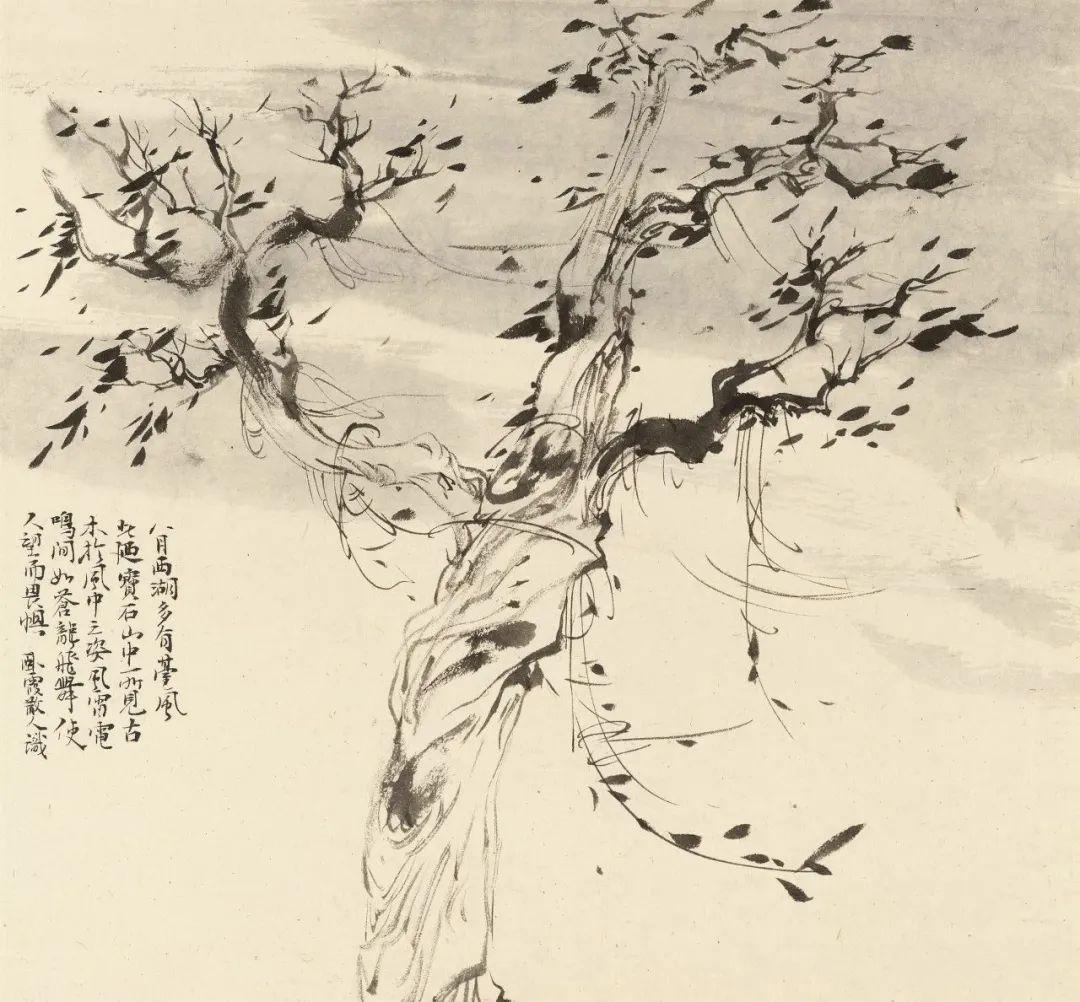 八月西湖多有臺風
此陋寶石山中所見古
木於風中之姿風雷電
鳴間如蒼龍飛舞使
人望而畏惧 臥霞散人識